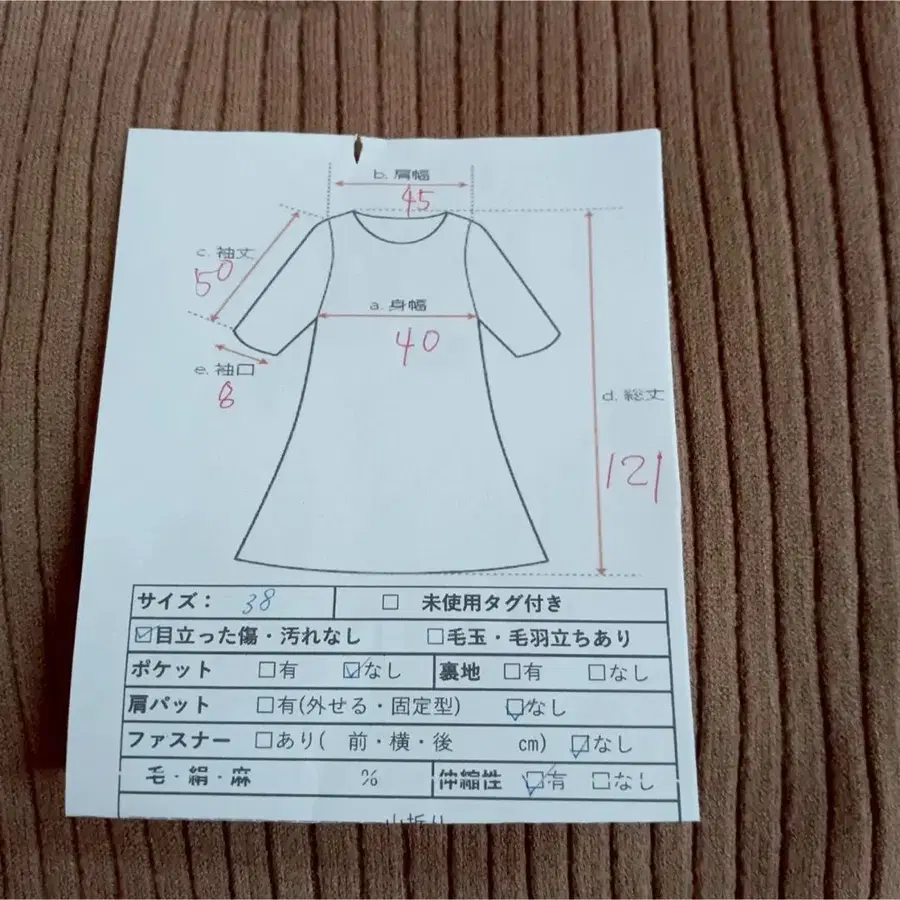 b. 肩幅
45
c. 袖丈
50
a. 身幅
40
e. 袖口
8
d. 総丈
121
サイズ: 38 □ 未使用タグ付き
☑目立った傷・汚れなし □毛玉・毛羽立ちあり
ポケット □有 ☑なし 裏地 □有 □なし
肩パット □有(外せる・固定型) ☑なし
ファスナー □あり( 前・横・後 cm) ☑なし
毛・絹・麻 % 伸縮性 ☑有 □なし